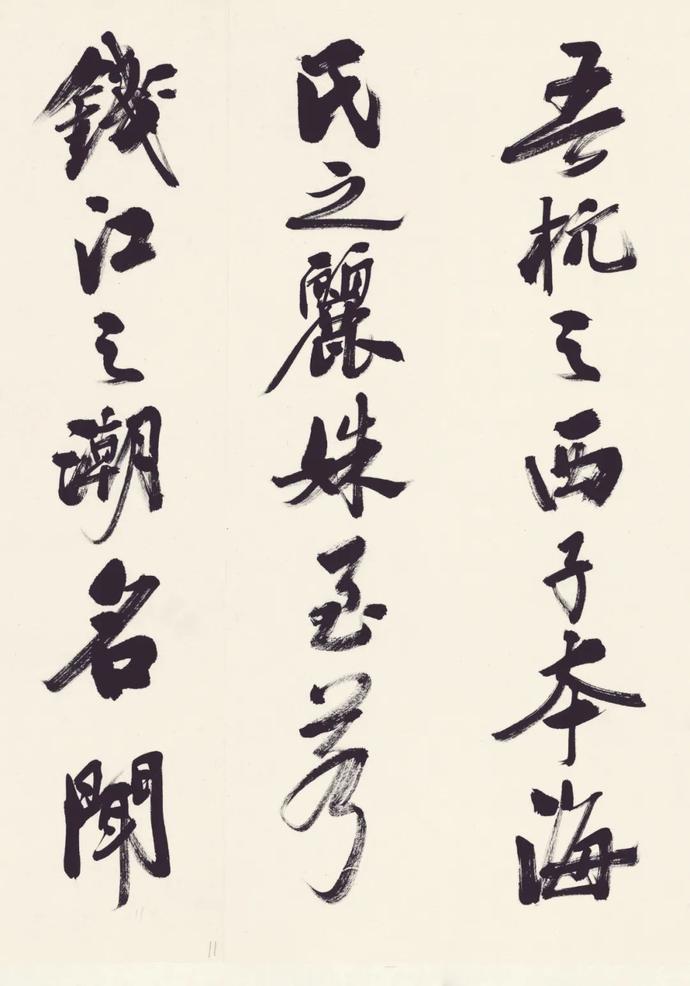 吾杭之西子本海
氏之麗姝至若
錢江之潮名聞